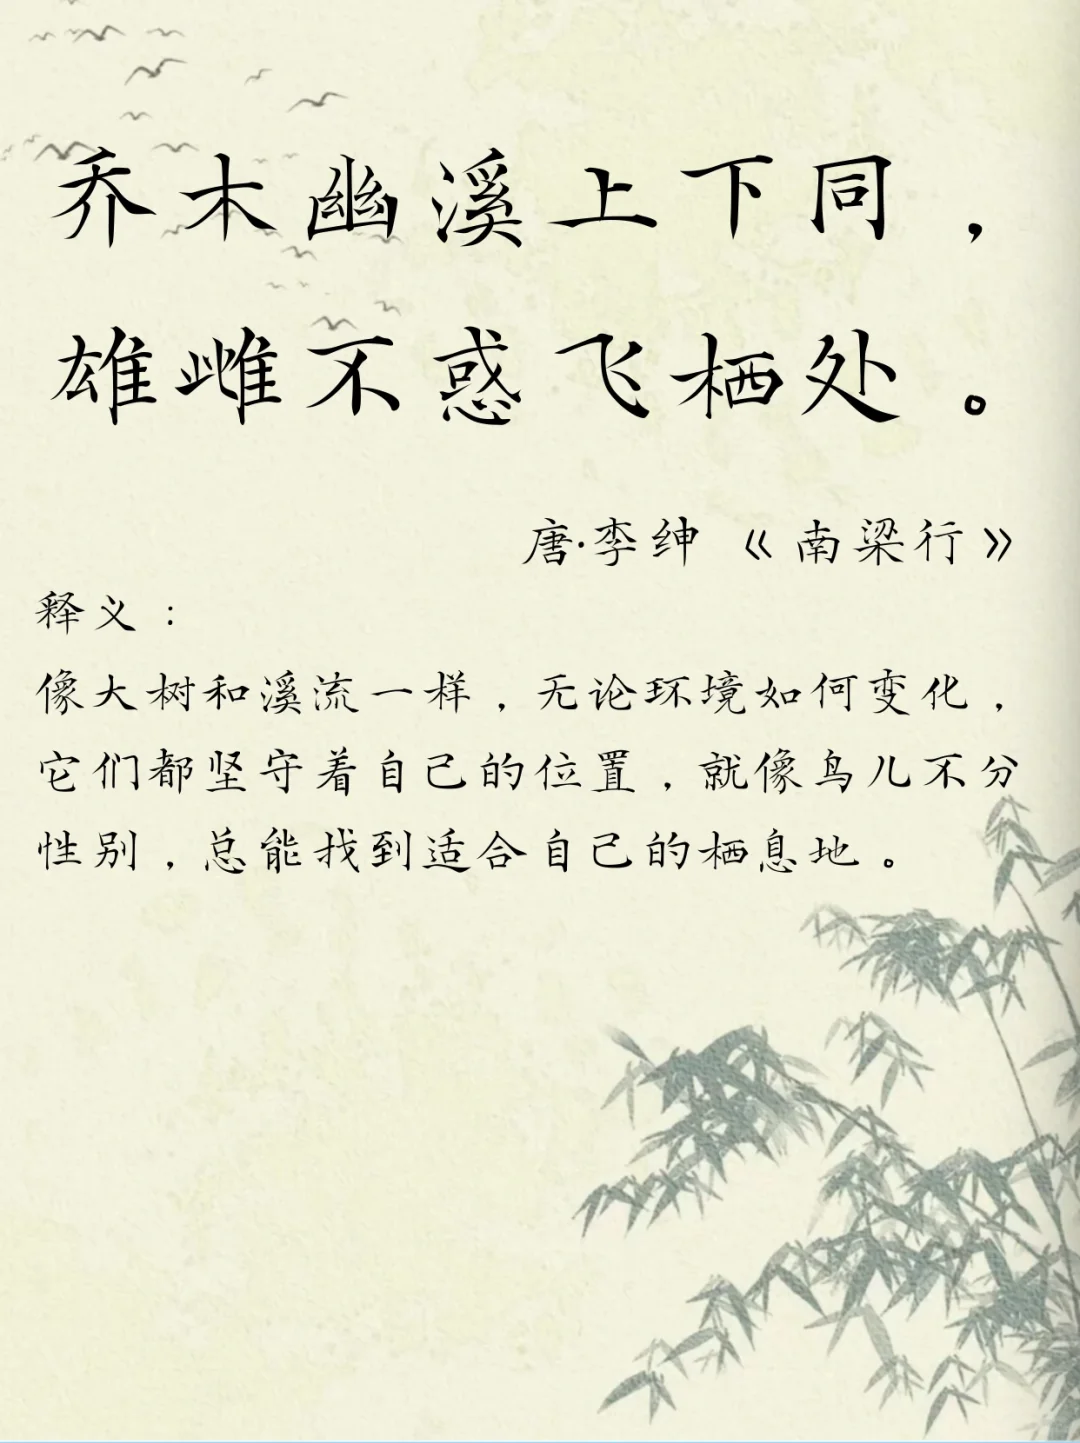 乔木幽溪上下同，
雄雌不惑飞栖处。
唐·李绅《南梁行》
释义：
像大树和溪流一样，无论环境如何变化，
它们都坚守着自己的位置，就像鸟儿不分
性别，总能找到适合自己的栖息地。